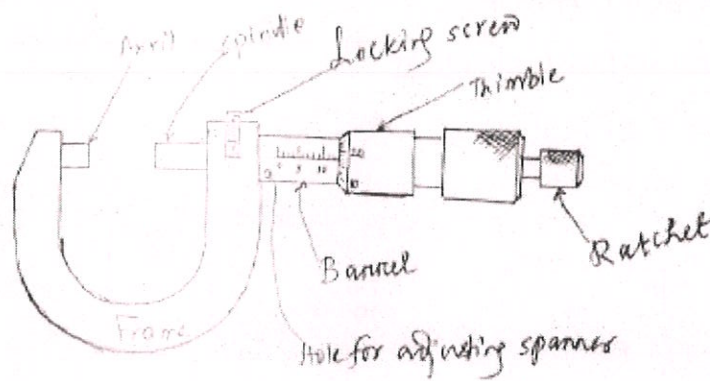 Anvil
spindle
Locking screw
Thimble
20
0 5 10
10
Ratchet
Barrel
Frame
Hole for adjusting spanner